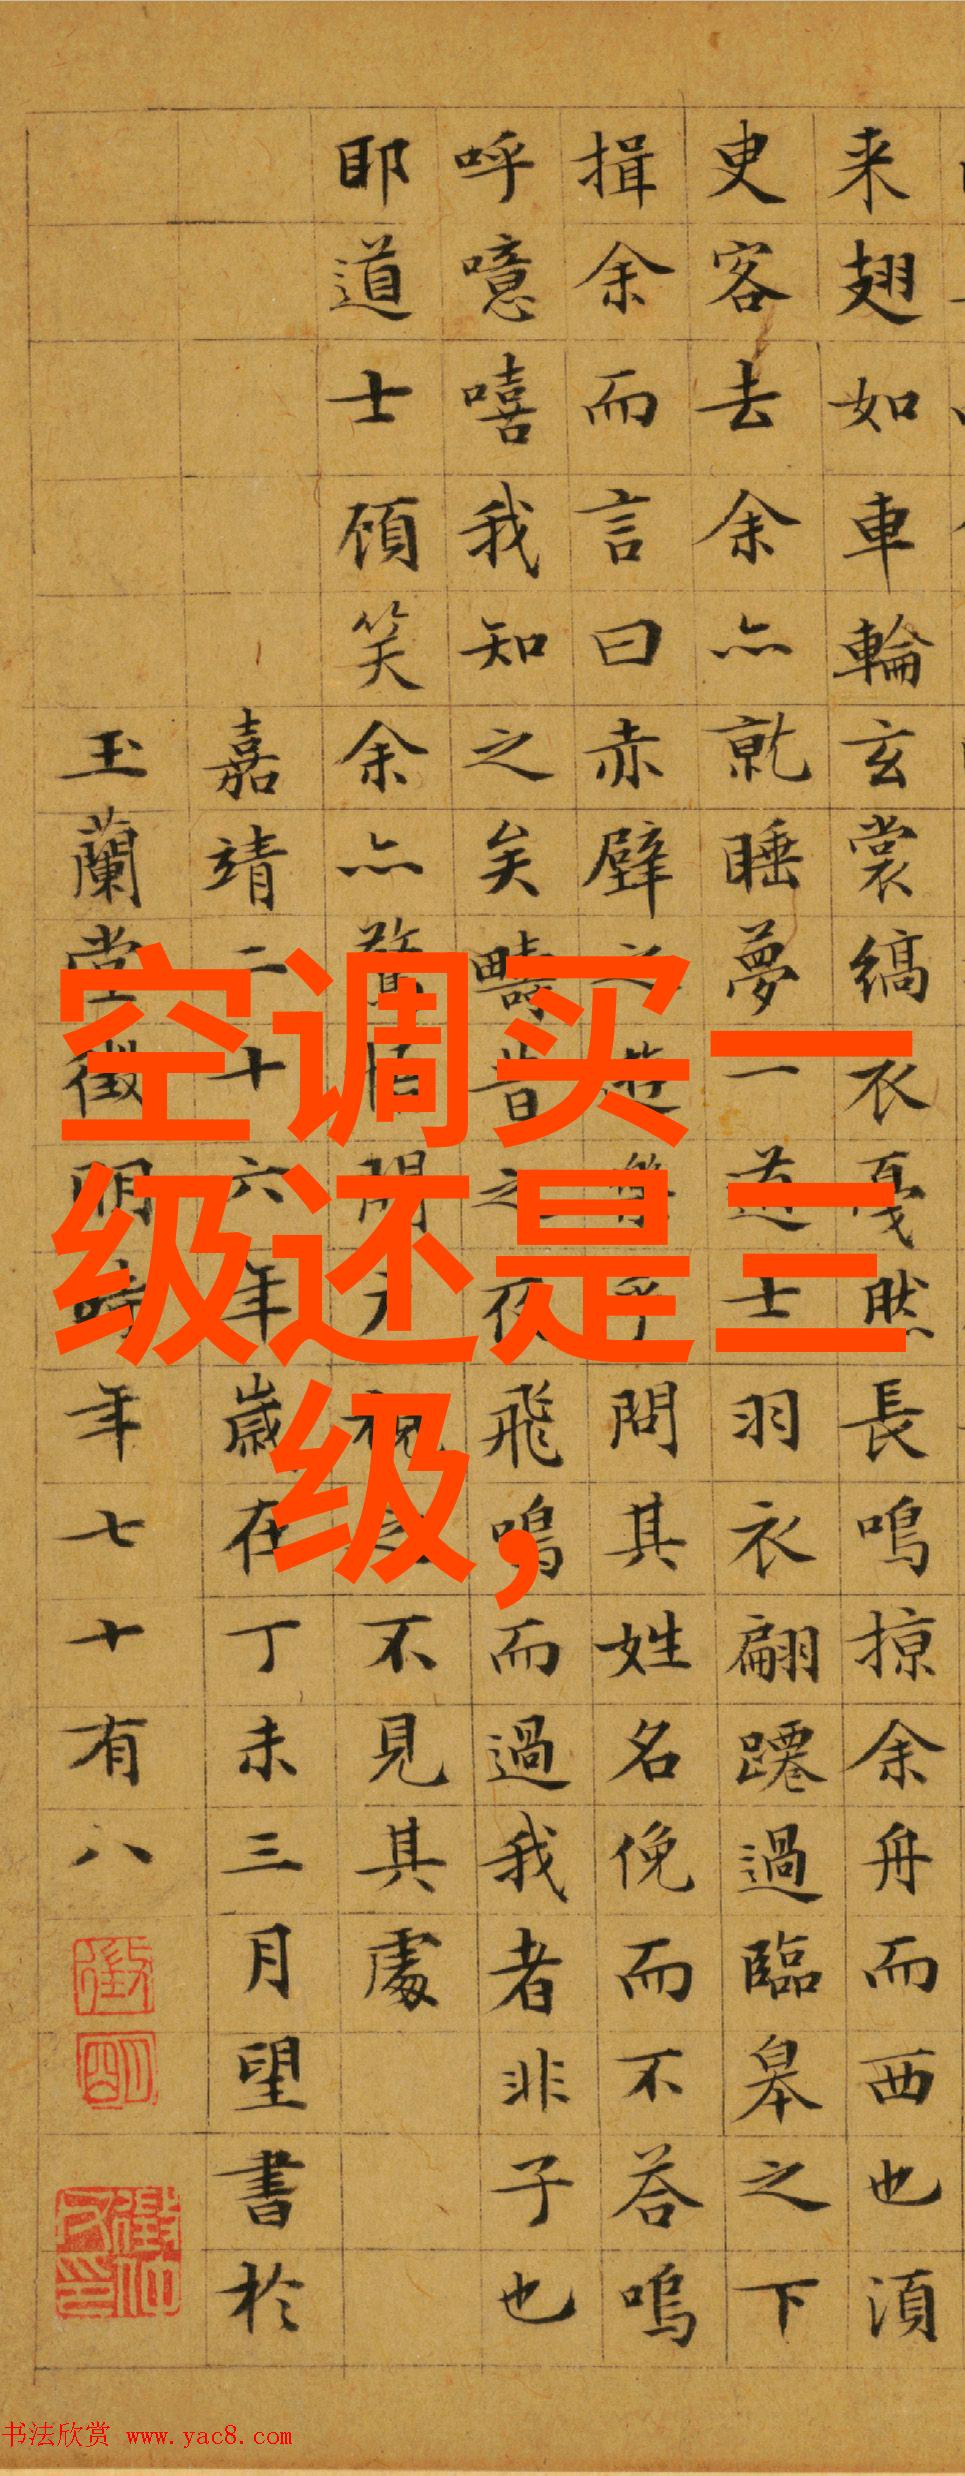 来翅如車輪玄裳縞衣戛然長鳴掠余舟而西也湏
叟客去余亦就睡夢一道士羽衣翩躚過臨皋之下
揖余而言曰赤壁之遊樂乎問其姓名俛而不荅嗚
呼噫嘻我知之矣疇昔之夜飛鳴而過我者非子也
耶道士顧笑余亦驚悟開户視之不見其處
嘉靖二十六年歲在丁未三月望書於
玉蘭堂徵明時年七十有八
空调买一
级还是三
级,
徵
明
书法欣赏 www.yac8.com